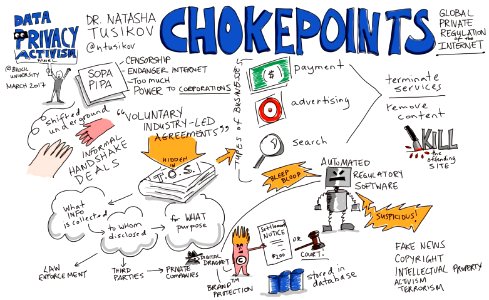 DATA
PRIVACY
ACTIVISM
PANEL
@BROCK
UNIVERSITY
MARCH 2017
DR. NATASHA
TUSIKOV
@ntusikov
CHOKEPOINTS
GLOBAL
PRIVATE
REGULATION
of the
INTERNET
SOPA
PIPA
CENSORSHIP
ENDANGER INTERNET
TOO MUCH
POWER TO CORPORATIONS
shifted
underground
INFORMAL
HANDSHAKE
DEALS
"VOLUNTARY
INDUSTRY-LED
AGREEMENTS"
HIDDEN
IN
T.O.S.
TYPES OF BUSINESS
$
payment
advertising
search
terminate
services
remove
content
KILL
the
offending
SITE
BLEEP
BLOOP
AUTOMATED
REGULATORY
SOFTWARE
SUSPICIOUS!
what
INFO
is collected
to whom
disclosed
for WHAT
purpose
LAW
ENFORCEMENT
THIRD
PARTIES
PRIVATE
COMPANIES
DIGITAL
DRAGNET
BRAND
PROTECTION
Settlement
NOTICE
$200
OR
COURT.
stored in
database
FAKE NEWS
COPYRIGHT
INTELLECTUAL PROPERTY
ACTIVISM
TERRORISM